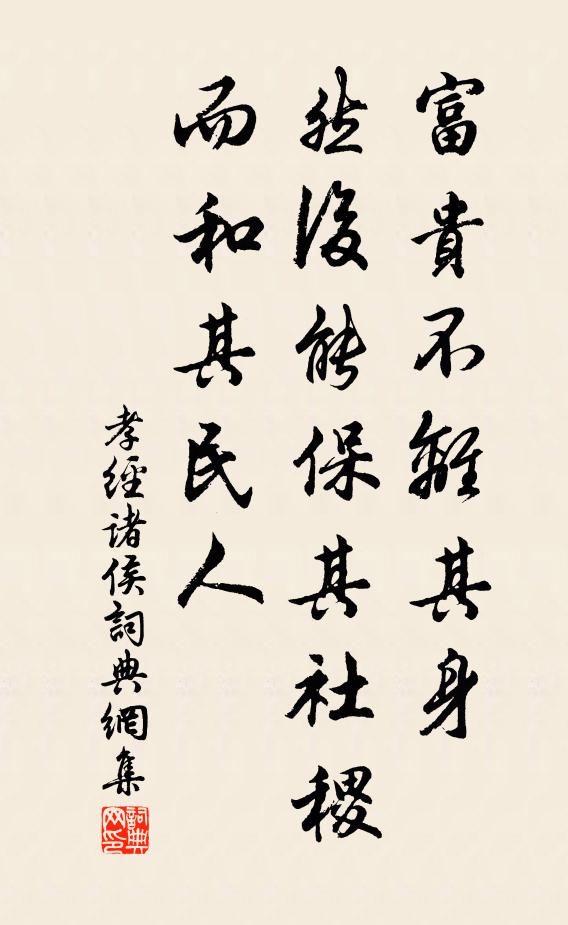 富貴不離其身
然後能保其社稷
而和其民人
孝經诸侯詞典網集
詞典网印